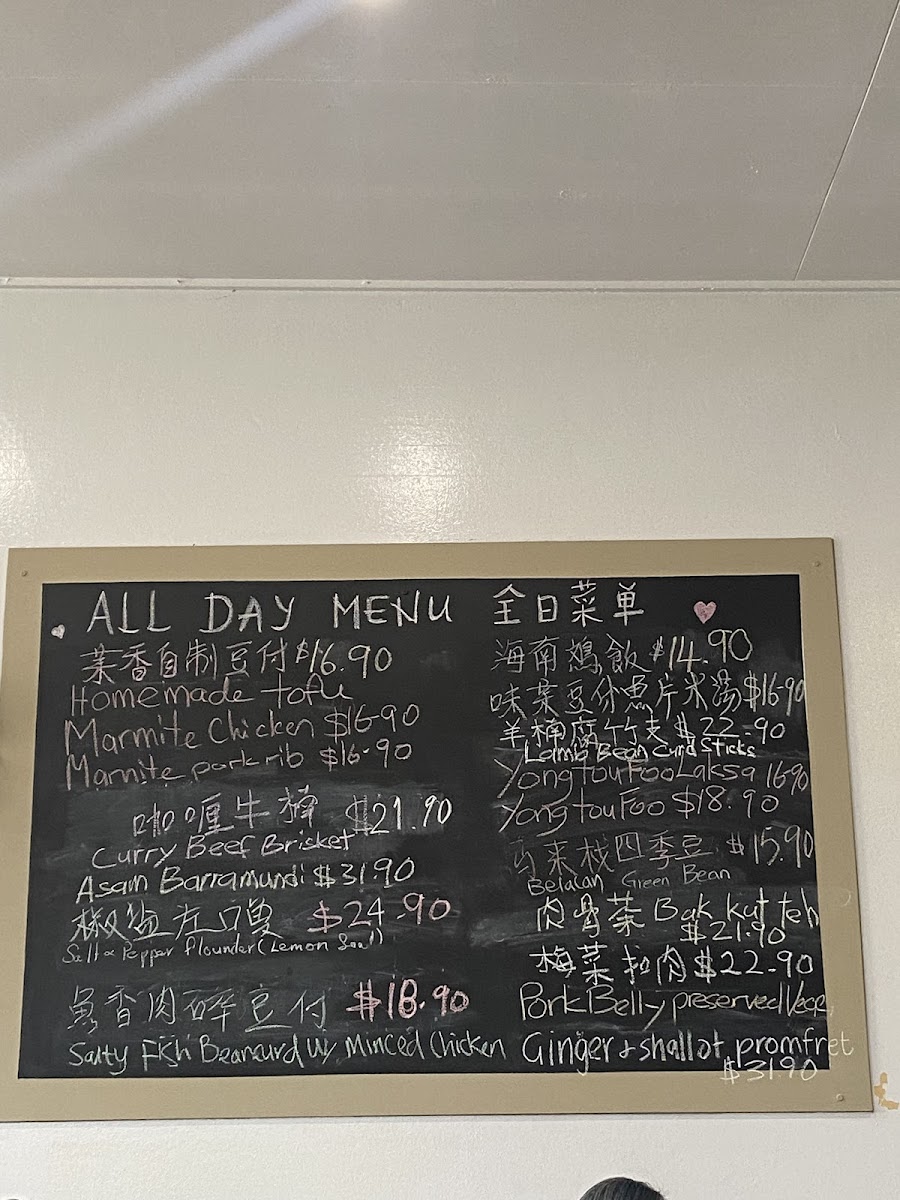 ALL DAY MENU 全日菜单
菜香自制豆付 $16.90
Homemade tofu
Marmite Chicken $16.90
Marmite pork rib $16.90
咖喱牛楠 $21.90
Curry Beef Brisket
Asam Barramundi $31.90
椒盐左口魚 $24.90
Salt & Pepper flounder (Lemon Soul)
魚香肉碎豆付 $18.90
Salty Fish Beancurd W/ Minced Chicken
海南鸡飯 $14.90
味菜豆付魚片米汤 $16.90
羊楠腐竹支 $22.90
Lamb Bean Curd Sticks
Yong tou Foo Laksa 16.90
Yong tou Foo $18.90
马来栈四季豆 $15.90
Belacan Green Bean
肉骨茶 Bak kut teh
$21.90
梅菜扣肉 $22.90
Pork Belly preserved Veg
Ginger & shallot promfret
$31.90